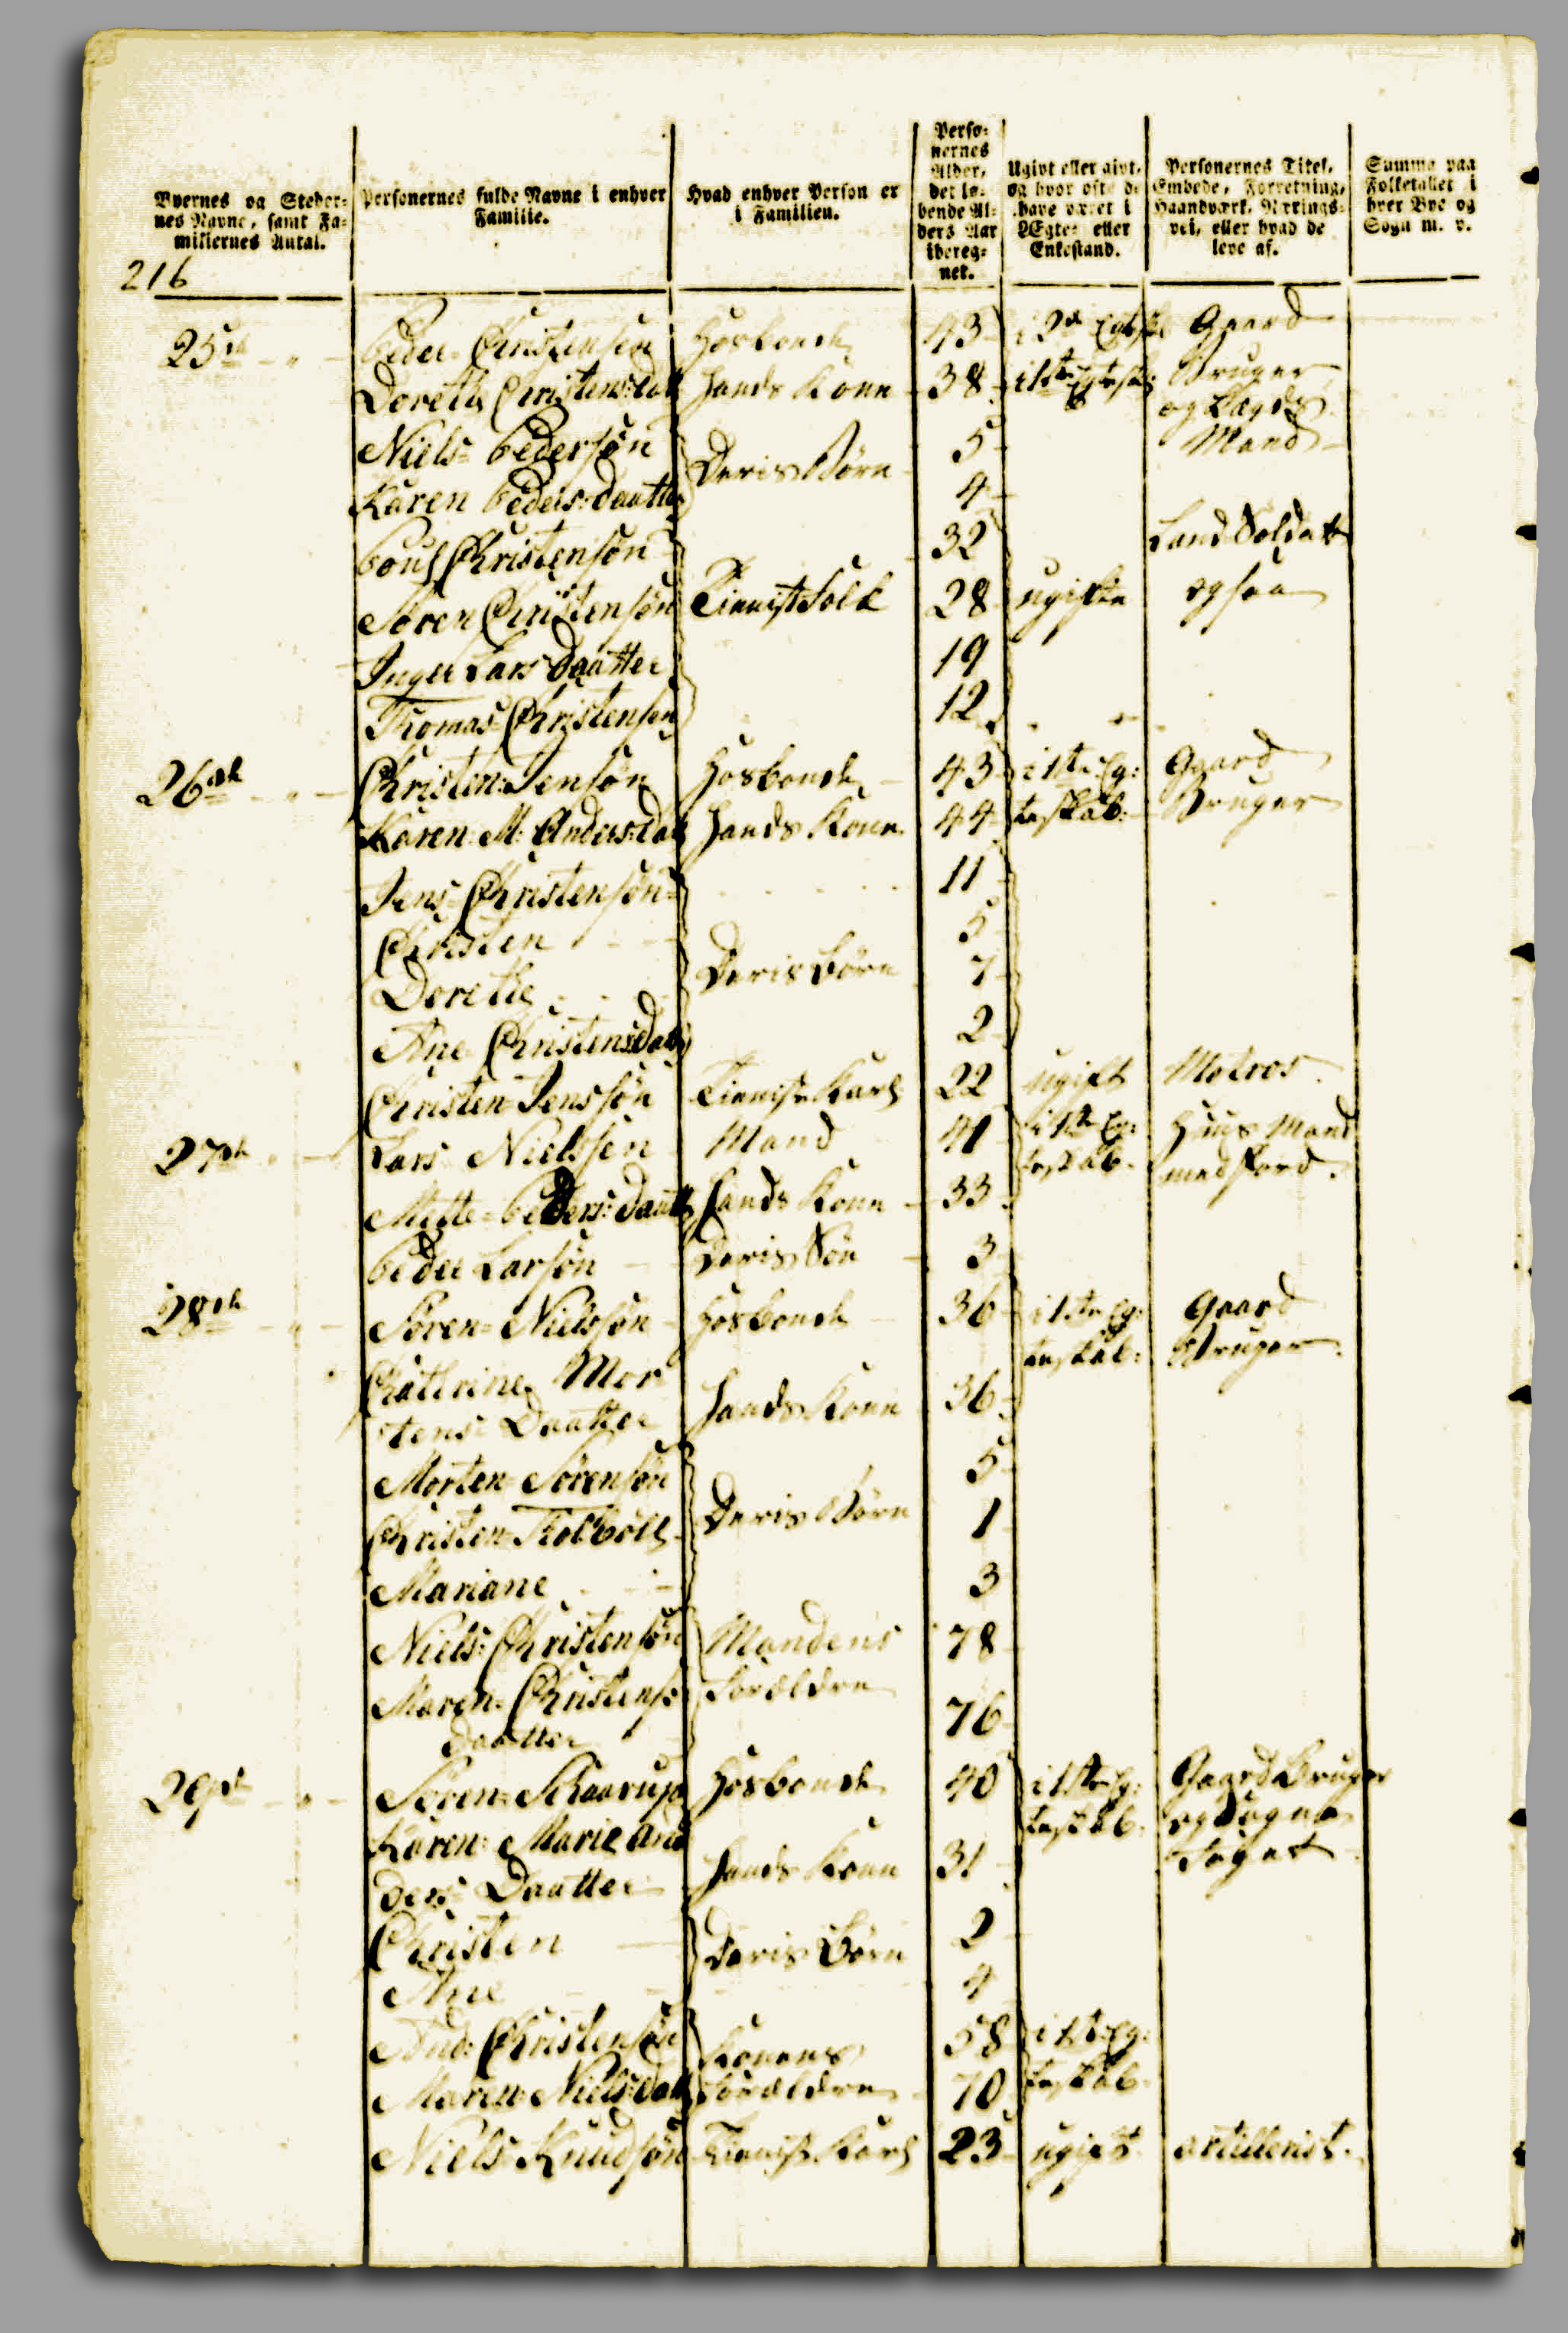 Byernes og Steder-
nes Navne, samt Fa-
miliernes Antal.
Personernes fulde Navne i enhver
Familie.
Hvad enhver Person er
i Familien.
Perso-
nernes
Alder,
det lø-
bende Al-
ders Aar
ibereg-
net.
Ugivt eller givt,
og hvor ofte de
have været i
Ægte- eller
Enkestand.
Personernes Titel,
Embede, Forretning,
Haandværk, Nærings-
vei, eller hvad de
leve af.
Summa paa
Folketallet i
hver Bye og
Sogn m. v.
216
25de Peder Christensen Hosbonde 43 i 2det Gaard
Dorethe Christens:datt Hands Kone 38 i 1ste Bruger
og Lægds
Niels Pedersøn 5 Mand
Deris Børn
Karen Peders:daatter 4
Poul Christensøn 32 Land Soldat
Søren Christensøn Tienistfolk 28 ugifte ogsaa
Inger Lars Daatter 19
Thomas Christensen 12
26de Christen Jensøn Hosbonde 43 i 1te Eg: Gaard
Karen M: Anders:dat Hands Kone 44 teskab: Bruger
Jens Christensøn 11
Christen 5
Deris børn
Dorethe 7
Ane Christensdatt 2
Christen Jenssøn Tieniste Karl 22 ugift Matros
27de Lars Nielssen Mand 41 i 1te Eg: Huus Mand
teskab. med Jord.
Mette Peders:daatt Hands Kone 33
Peder Larsøn Deris Søn 3
28de Søren Nielssøn Hosbonde 36 i 1te Eg: Gaard
teskab: Bruger
Chatrine Mor
tens Daatter Hands Kone 36
Morten Sørensøn 5
Christen Deris Børn 1
Mariane 3
Niels Christensøn Mandens 78
Maren Christens Forældre
daatter 76
29de Søren Skaarup Hosbonde 40 i 1te Eg: Gaard Bruger
teskab. og Sogne
Karen Marie An
ders Daatter Hands Kone 31 foget
Christen 2
Deris Børn
Ane 4
And: Christensøn Konens 58 i 1te Eg:
Maren Niels:datt Forældre 70 teskab.
Niels Knudsøn Tieniste Karl 23 ugift artillerist.